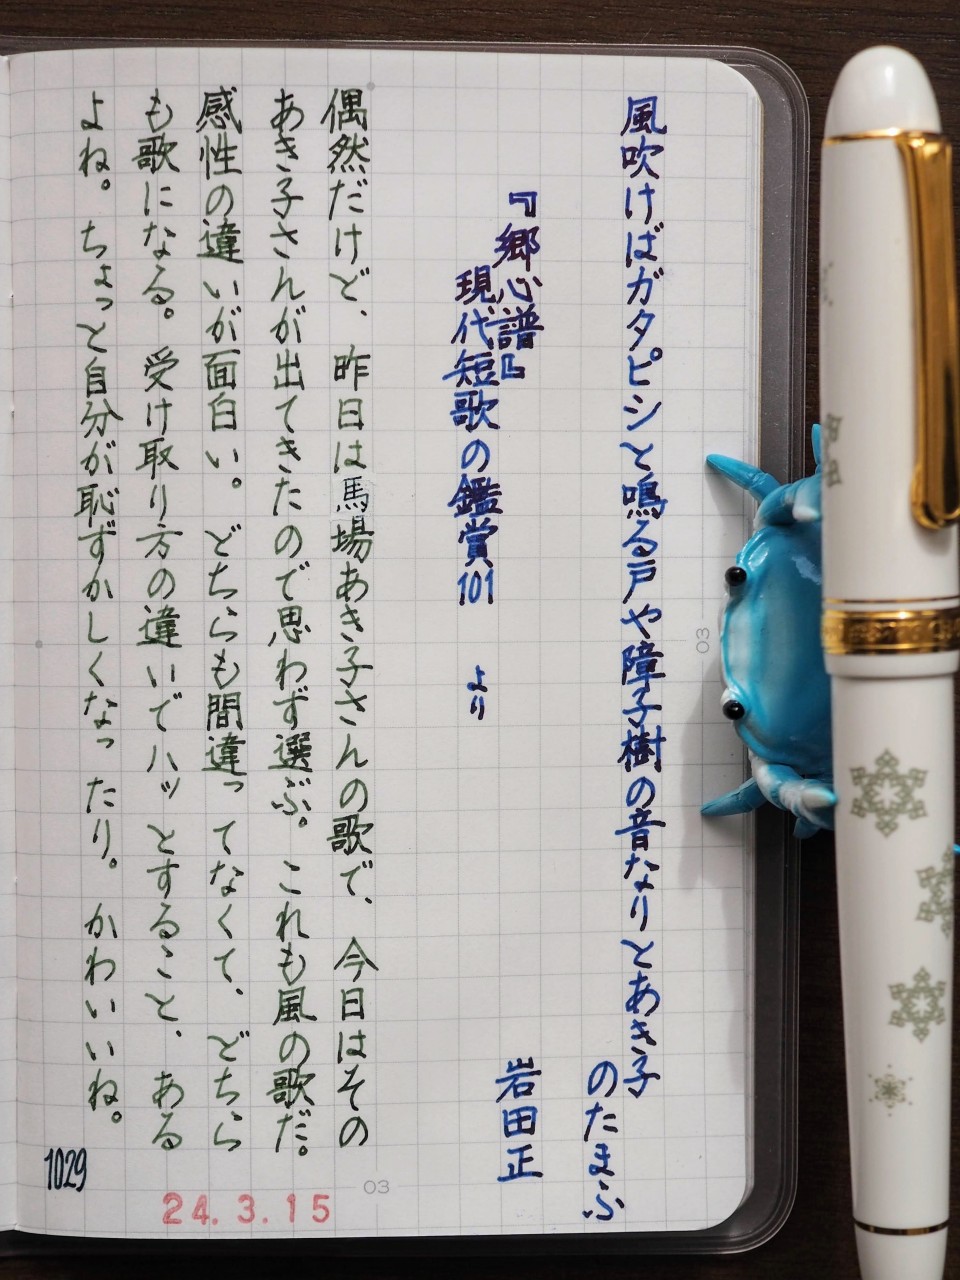 風吹けばガタピシと鳴る戸や障子樹の音なりとあき子
のたまふ
岩田正
『郷心譜』
現代短歌の鑑賞101 より
偶然だけど、昨日は馬場あき子さんの歌で、今日はその
あき子さんが出てきたので思わず選ぶ。これも風の歌だ。
感性の違いが面白い。どちらも間違ってなくて、どちら
も歌になる。受け取り方の違いでハッとすること、ある
よね。ちょっと自分が恥ずかしくなったり。かわいいね。
1029
24.3.15
03
03